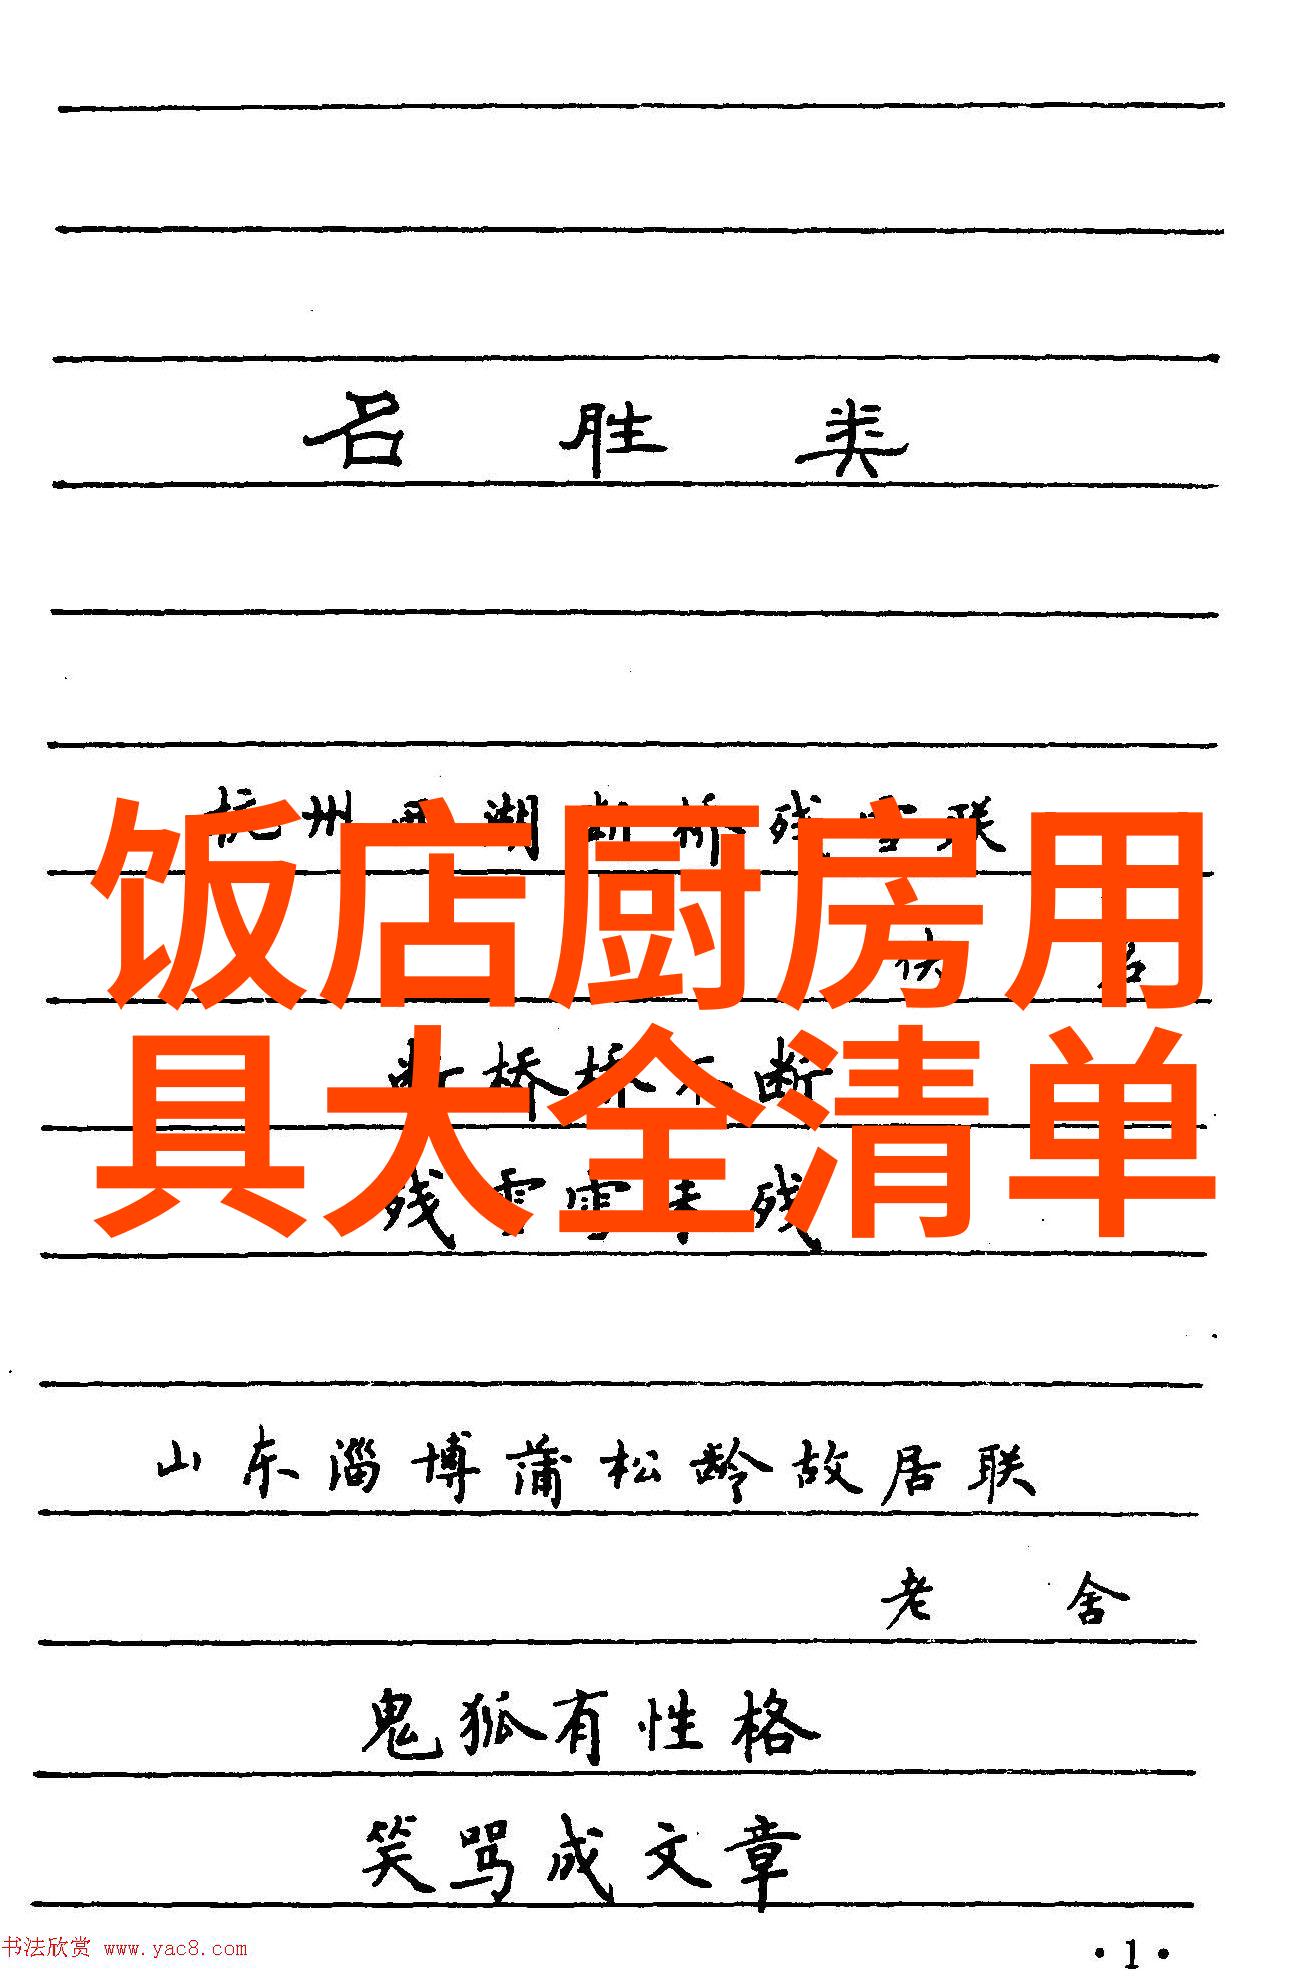 名胜类
杭州西湖断桥残雪联
饭店厨房用
佚名
具大全清单
断桥桥不断
残雪雪未残
山东淄博蒲松龄故居联
老舍
鬼狐有性格
笑骂成文章
书法欣赏 www.yac8.com
·1·